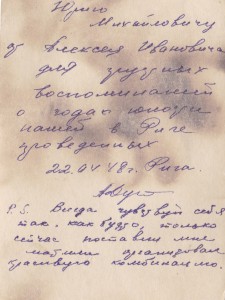 Юрию
Михайловичу
от Алексея Ивановича
для грустных
воспоминаний
о годах юности
нашей в Риге
проведенных
22.04.48г. Рига.
P.S. Всегда чувствуй себя
так, как будто только
сейчас поставил мне
мат или организовал
красивую комбинацию.